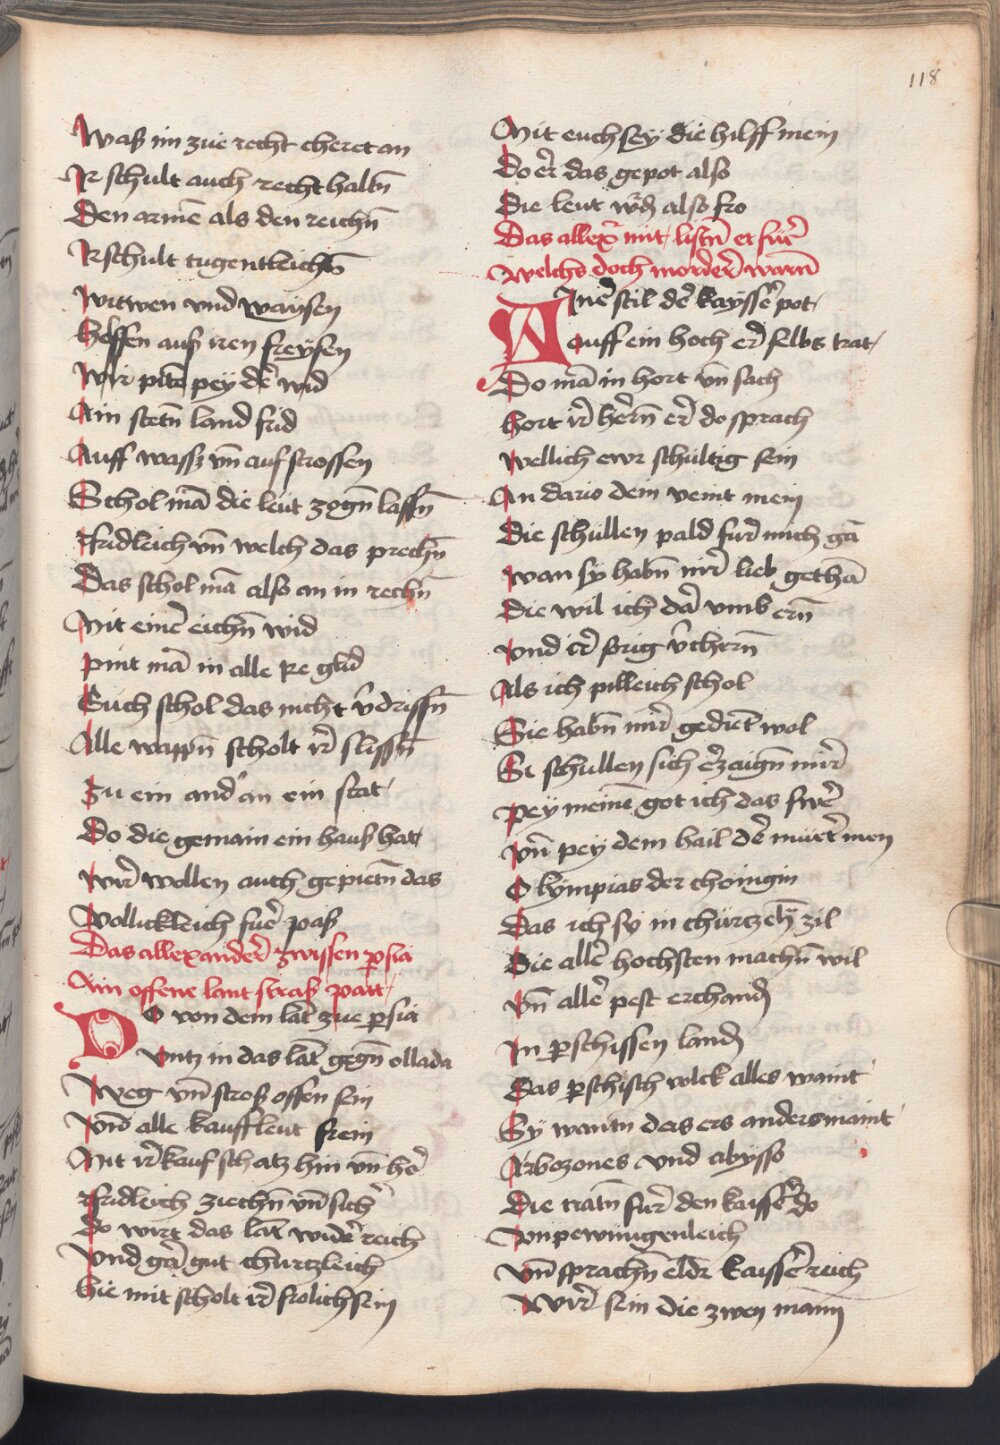 118
Waß im zue recht cheret an
Ir schult auch recht halbñ
Den armē als den reichñ
Ir schult tugentleichñ
Witwen vnd waysen
Helffen auß iren freysen
Wir pitē pey der wid
Ain stetñ land frid
Auff wassz vñ auf strossen
Schol mā die leut zogñ lassñ
Fridleich vñ welch das prechñ
Das schol mā also an in rechñ
Mit einē eichñ wid
Pint mā in alle Ire glid
Euch schol das nicht v̄drissñ
Alle wappñ scholt ir slissñ
Zu ein and an ein stat
Do die gemain ein hauß hat
Wir wollen auch gepietñ das
Vollickleich fuer paß
Das allexander zwissen persia
Ain offene lant straß pawt
DO von dem lāt zue persia
Vntz in das lāt gegñ ollada
Weg vñ stroß offen sein
Vnd alle kauffleut frein
Mit ir kaufschatz hin vñ her
Fridleich ziechñ vñ sicher
Do wirt das lāt wider reich
Vnd gar gut churtzleich
Hie mit scholt ir frolich sein
Mit euch sey die hilff mein
Do er das gepot also
Die leut wdñ also fro
Das allexr mit listñ er fur
Welchs doch morder warñ
AIner stil der kaysser pot
Auff ein hoch er selbs trat
Do mā in hort vñ sach
Hort ir herñ er do sprach
Wellich ewr schultig sein
An dario dem veint mein
Die schullen pald fur mich gā
Wan sy habñ mir lieb gethā
Die wil ich dar vmb erñ
Vnd ir sorig v̄cherñ
Als ich pilleich schol
Sie habñ mir gediēt wol
Si schullen sich erzaigñ mir
Pey meinē got ich das swer
Vñ pey dem hail der muter mein
Olympias der choingin
Das ich sy in churtzeñ zil
Die aller hochsten machñ wil
Vñ aller pest erchandñ
In perschissen landñ
Das perschisch volck alles wānt
Sy wantn das ers anders maint
Arbozones vnd abysso
Die tratñ fur den kaisser do
Vnpewnugenleich
Vñ sprachñ eldr kaisser reich
Wir sein die zwen mann